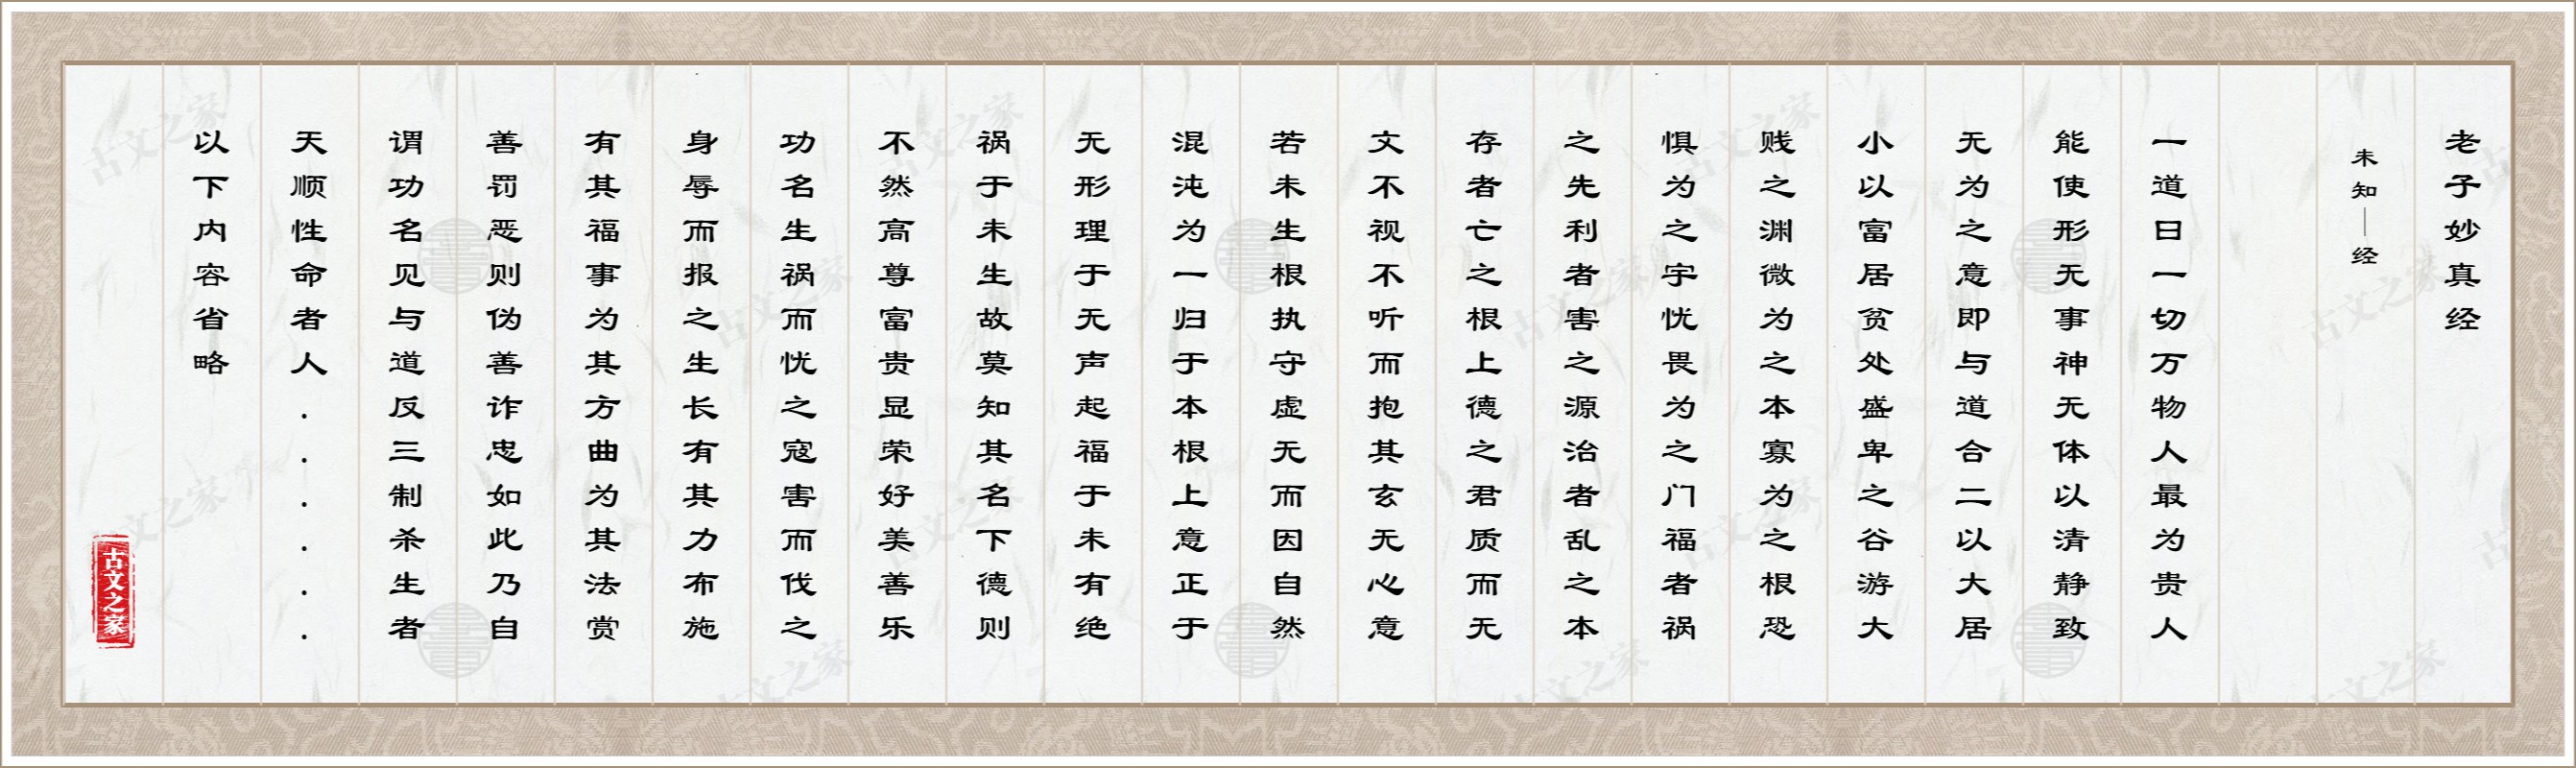 老子妙真经
未知｜经
一道日一切万物人最为贵人
能使形无事神无体以清静致
无为之意即与道合二以大居
小以富居贫处盛卑之谷游大
贱之渊微为之本寡为之根恐
惧为之宇忧畏为之门福者祸
之先利者害之源治者乱之本
存者亡之根上德之君质而无
文不视不听而抱其玄无心意
若未生根执守虚无而因自然
混沌为一归于本根上意正于
无形理于无声起福于未有绝
祸于未生故莫知其名下德则
不然高尊富贵显荣好美善乐
功名生祸而忧之寇害而伐之
身辱而报之生长有其力布施
有其福事为其方曲为其法赏
善罚恶则伪善诈忠如此乃自
谓功名见与道反三制杀生者
天顺性命者人......
以下内容省略
古文之家